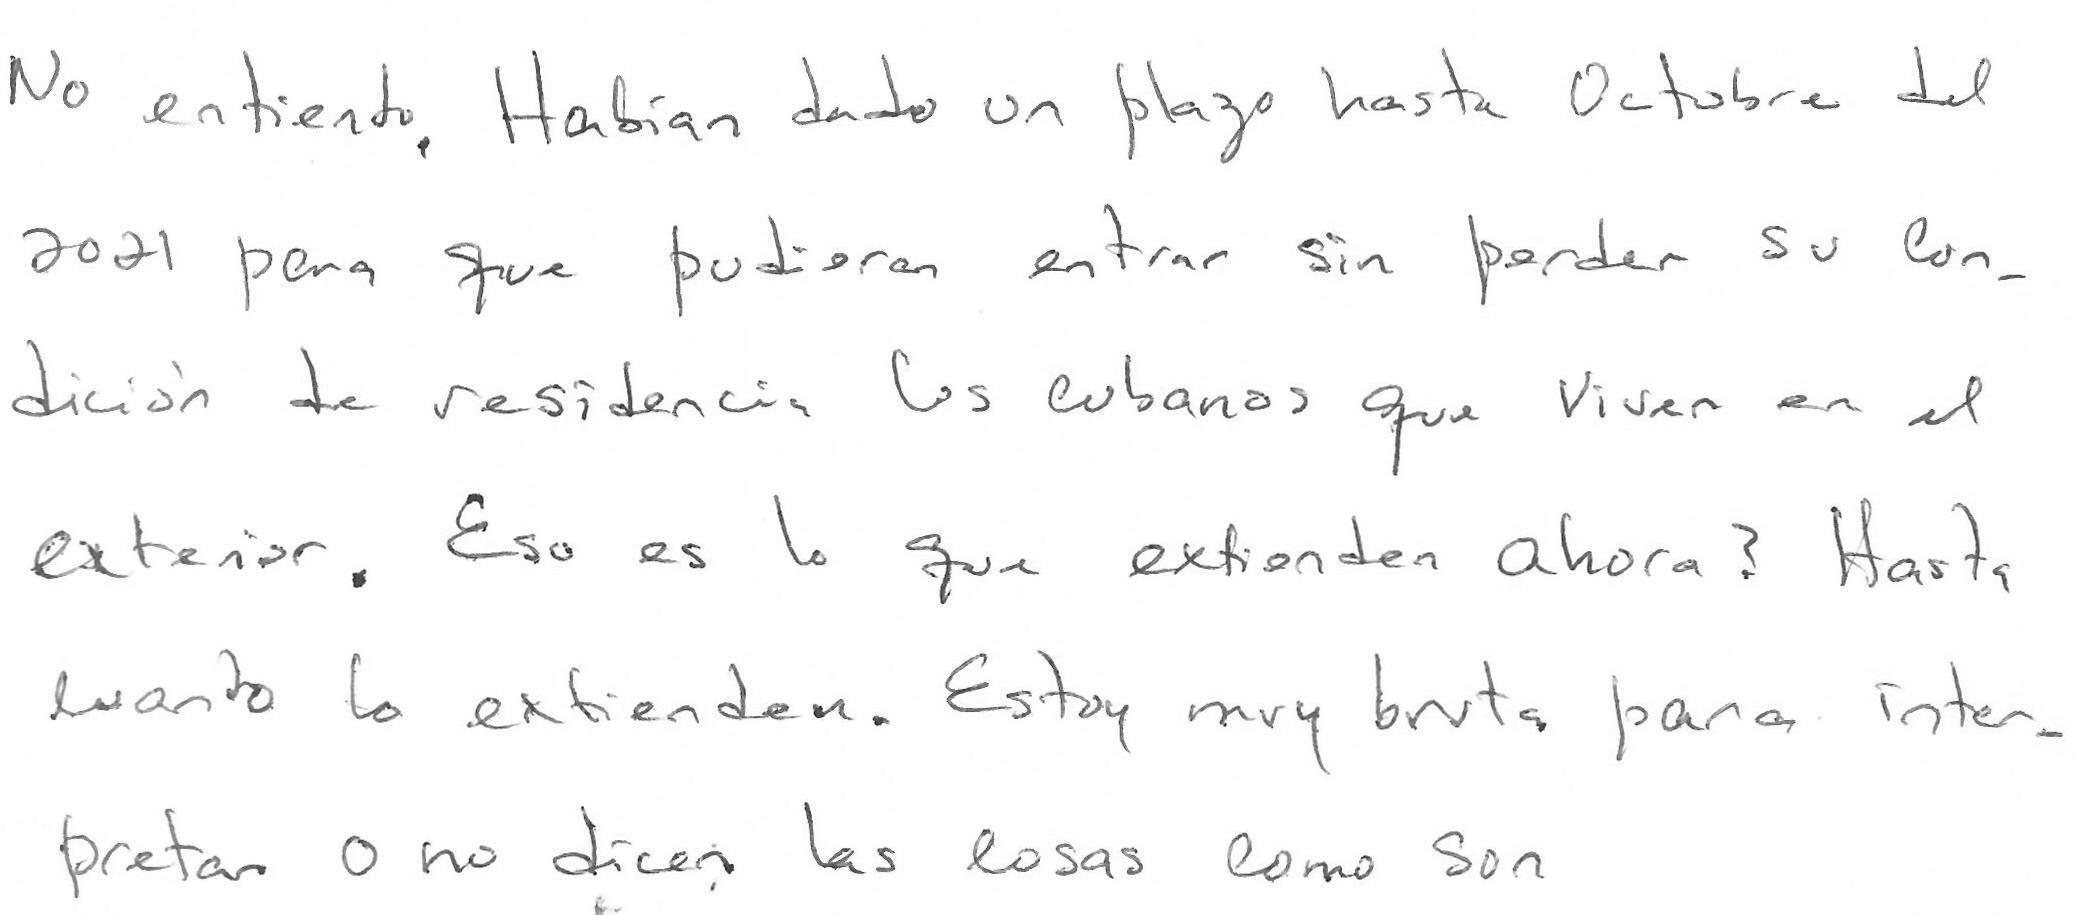 No entiento. Habían dado un plazo hasta Octubre del
2021 para que pudieran entrar sin perder su con-
dición de residencia los cubanos que viven en el
exterior. Eso es lo que extienden ahora? Hasta
cuanto lo extienden. Estoy muy bruta para inter-
pretar o no dicen las cosas como son